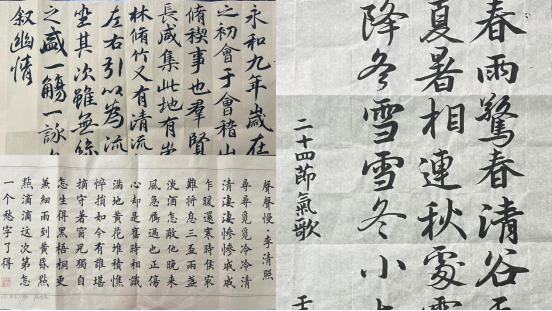 永和九年歲在
之初會于會稽山
脩稧事也羣賢
長咸集此地有
林脩竹又有清流
左右引以為流
坐其次雖無絲
之盛一觴一詠
叙幽情
聲聲慢·李清照
尋尋覓覓冷冷清
清淒淒慘慘戚戚
乍暖還寒時候冣
難將息三盃兩盞
淡酒怎敵他晚來
風急雁過也正傷
心却是舊時相識
滿地黃花堆積憔
悴損如今有誰堪
摘守著窗兒獨自
怎生得黑梧桐更
兼細雨到黃昏點
點滴滴這次第怎
一个愁字了得
春雨驚春清谷天
夏暑相連秋處露
降冬雪雪冬小
二十四節氣歌